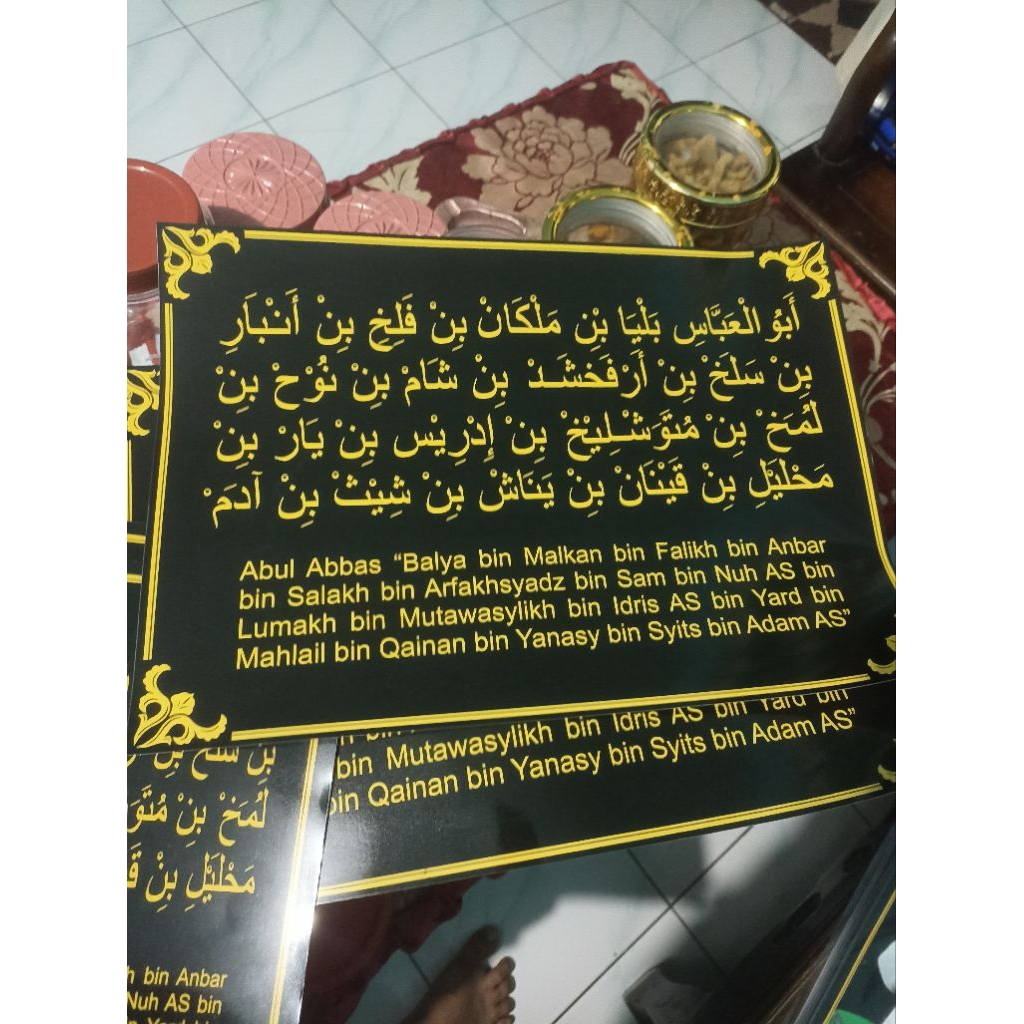 أَبُو الْعَبَّاسِ بَلْيَا بْنِ مَلْكَانْ بِنْ فَلِخِ بِنْ أَنْبَارِ
بِنْ سَلَخْ بِنْ أَرْفَخَشَـدْ بِنْ شَامْ بِنْ نُوْحْ بِنْ
لُمَخْ بِنْ مُتَوَشْـلِيْخْ بِنْ إِدْرِيْس بِنْ يَارْ بِنْ
مَحْلَيْلِ بِنْ قَيْنَانْ بِنْ يَنَاشْ بِنْ شِيْثْ بِنْ آدَمَ
Abul Abbas “Balya bin Malkan bin Falikh bin Anbar
bin Salakh bin Arfakhsyadz bin Sam bin Nuh AS bin
Lumakh bin Mutawasylikh bin Idris AS bin Yard bin
Mahlail bin Qainan bin Yanasy bin Syits bin Adam AS”
bin Mutawasylikh bin Idris AS bin Yard bin
bin Qainan bin Yanasy bin Syits bin Adam AS”
بِنْ سَلَخْ بِنْ
لُمَخْ بِنْ
مَحْلَيْلِ بِنْ
bin Anbar
Nuh AS bin